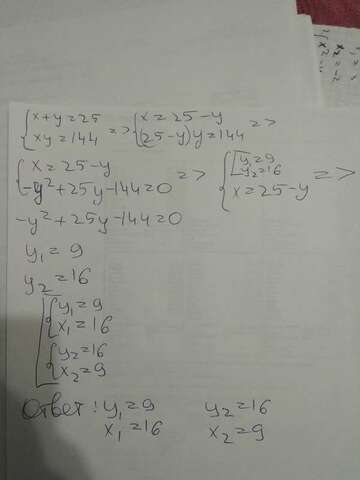 {x+y=25 => {x=25-y =>
{xy=144 {(25-y)y=144
{x=25-y => {[y₁=9 =>
{-y²+25y-144=0 [y₂=16
{x=25-y
-y²+25y-144=0
y₁=9
y₂=16
[{y₁=9
{x₁=16
{y₂=16
{x₂=9
Ответ: y₁=9 y₂=16
x₁=16 x₂=9